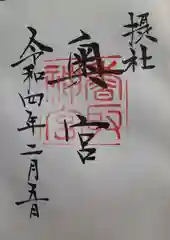 摂社
奥宮
香取
神宮
令和四年二月五日